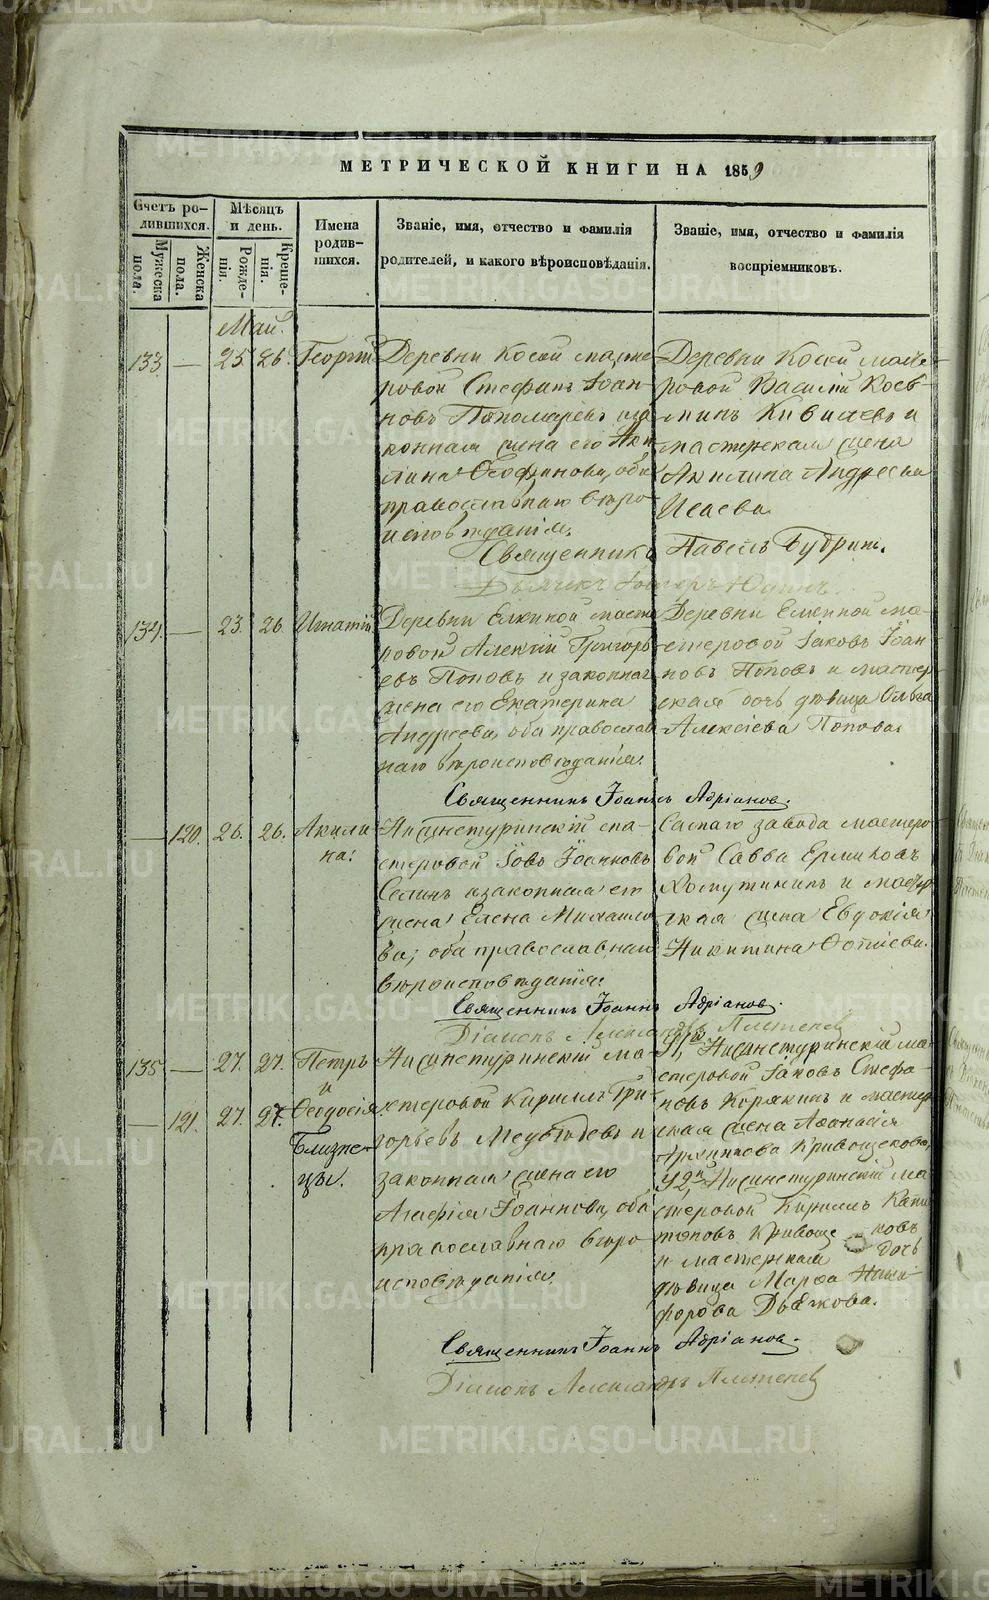 МЕТРИЧЕСКОЙ КНИГИ НА 1859
Счетъ родившихся.
Мужеска пола.
Женска пола.
Мѣсяцъ и день.
Рожденія.
Крещенія.
Имена родившихся.
Званіе, имя, отчество и фамилія
родителей, и какого вѣроисповѣданія.
Званіе, имя, отчество и фамилія
воспріемниковъ.
Май.
133. — 25. 26. Георгій
Деревни Косой масте-
ровой Стефанъ Іоан-
новъ Пономаревъ и за-
конная жена его Аки-
лина Ѳеофанова, оба
православнаго вѣро-
исповѣданія.
Деревни Косой масте-
ровой Василій Козь-
минъ и
мастерская жена
Акилина Андреева
Исаева
Священникъ Павелъ Бубрин.
134. — 23. 26. Игнатій
Деревни Елкиной масте-
ровой Алексій Григорь-
евъ Поповъ и законная
жена его Екатерина
Андреева, оба православ-
наго вѣроисповѣданія.
Деревни Елкиной ма-
стеровой Іаковъ Іоан-
новъ Поповъ и мастер-
ская дочь дѣвица Ольга
Алексіева Попова.
Священникъ Іоаннъ Адріановъ.
— 120. 26. 26. Акили-
на.
Нижнетуринскій ма-
стеровой Іовъ Іоанновъ
и законная его
жена Елена Михайло-
ва; оба православнаго
вѣроисповѣданія.
Самаго завода мастеро-
вой Савва Ермиловъ
Хомутининъ и мастер-
ская жена Евдокія
Никитина Фотіева.
Священникъ Іоаннъ Адріановъ.
Діаконъ Александръ Плетеневъ
135. — 27. 27. Петръ
и
121. 27. 27. Ѳеодосія
Близне-
цы.
Нижнетуринскій ма-
стеровой Кириллъ Гри-
горьевъ Медвѣдевъ и
законная жена его
Агафія Іоаннова, оба
православнаго вѣро-
исповѣданія.
У 1го Нижнетуринскій ма-
стеровой Іаковъ Стефа-
новъ Корякинъ и мастер-
ская жена Афанасія
Архипаева Кривощекова,
У 2й Нижнетуринскій ма-
стеровой Кириллъ Капи-
тоновъ Кривощековъ
и мастерская дочь
дѣвица Марѳа Ники-
форова Дьячкова.
Священникъ Іоаннъ Адріановъ.
Діаконъ Александръ Плетеневъ
METRIKI.GASO-URAL.RU